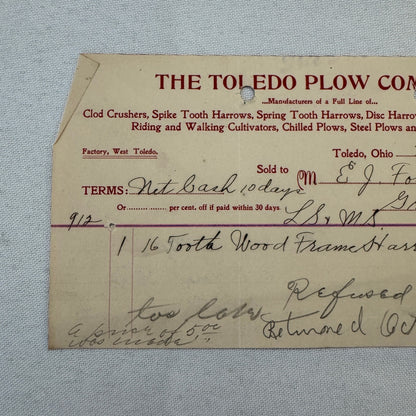 THE TOLEDO PLOW COM
...Manufacturers of a Full Line of...
Clod Crushers, Spike Tooth Harrows, Spring Tooth Harrows, Disc Harrow
Riding and Walking Cultivators, Chilled Plows, Steel Plows an
Factory, West Toledo.
Toledo, Ohio
Sold to M E J. Fo
TERMS: Net Cash 10 days
Or per cent. off if paid within 30 days
L S & M S
912
1 16 Tooth Wood Frame Harr
Refused
too late
Returned Oct
a price of 5.00
was made"